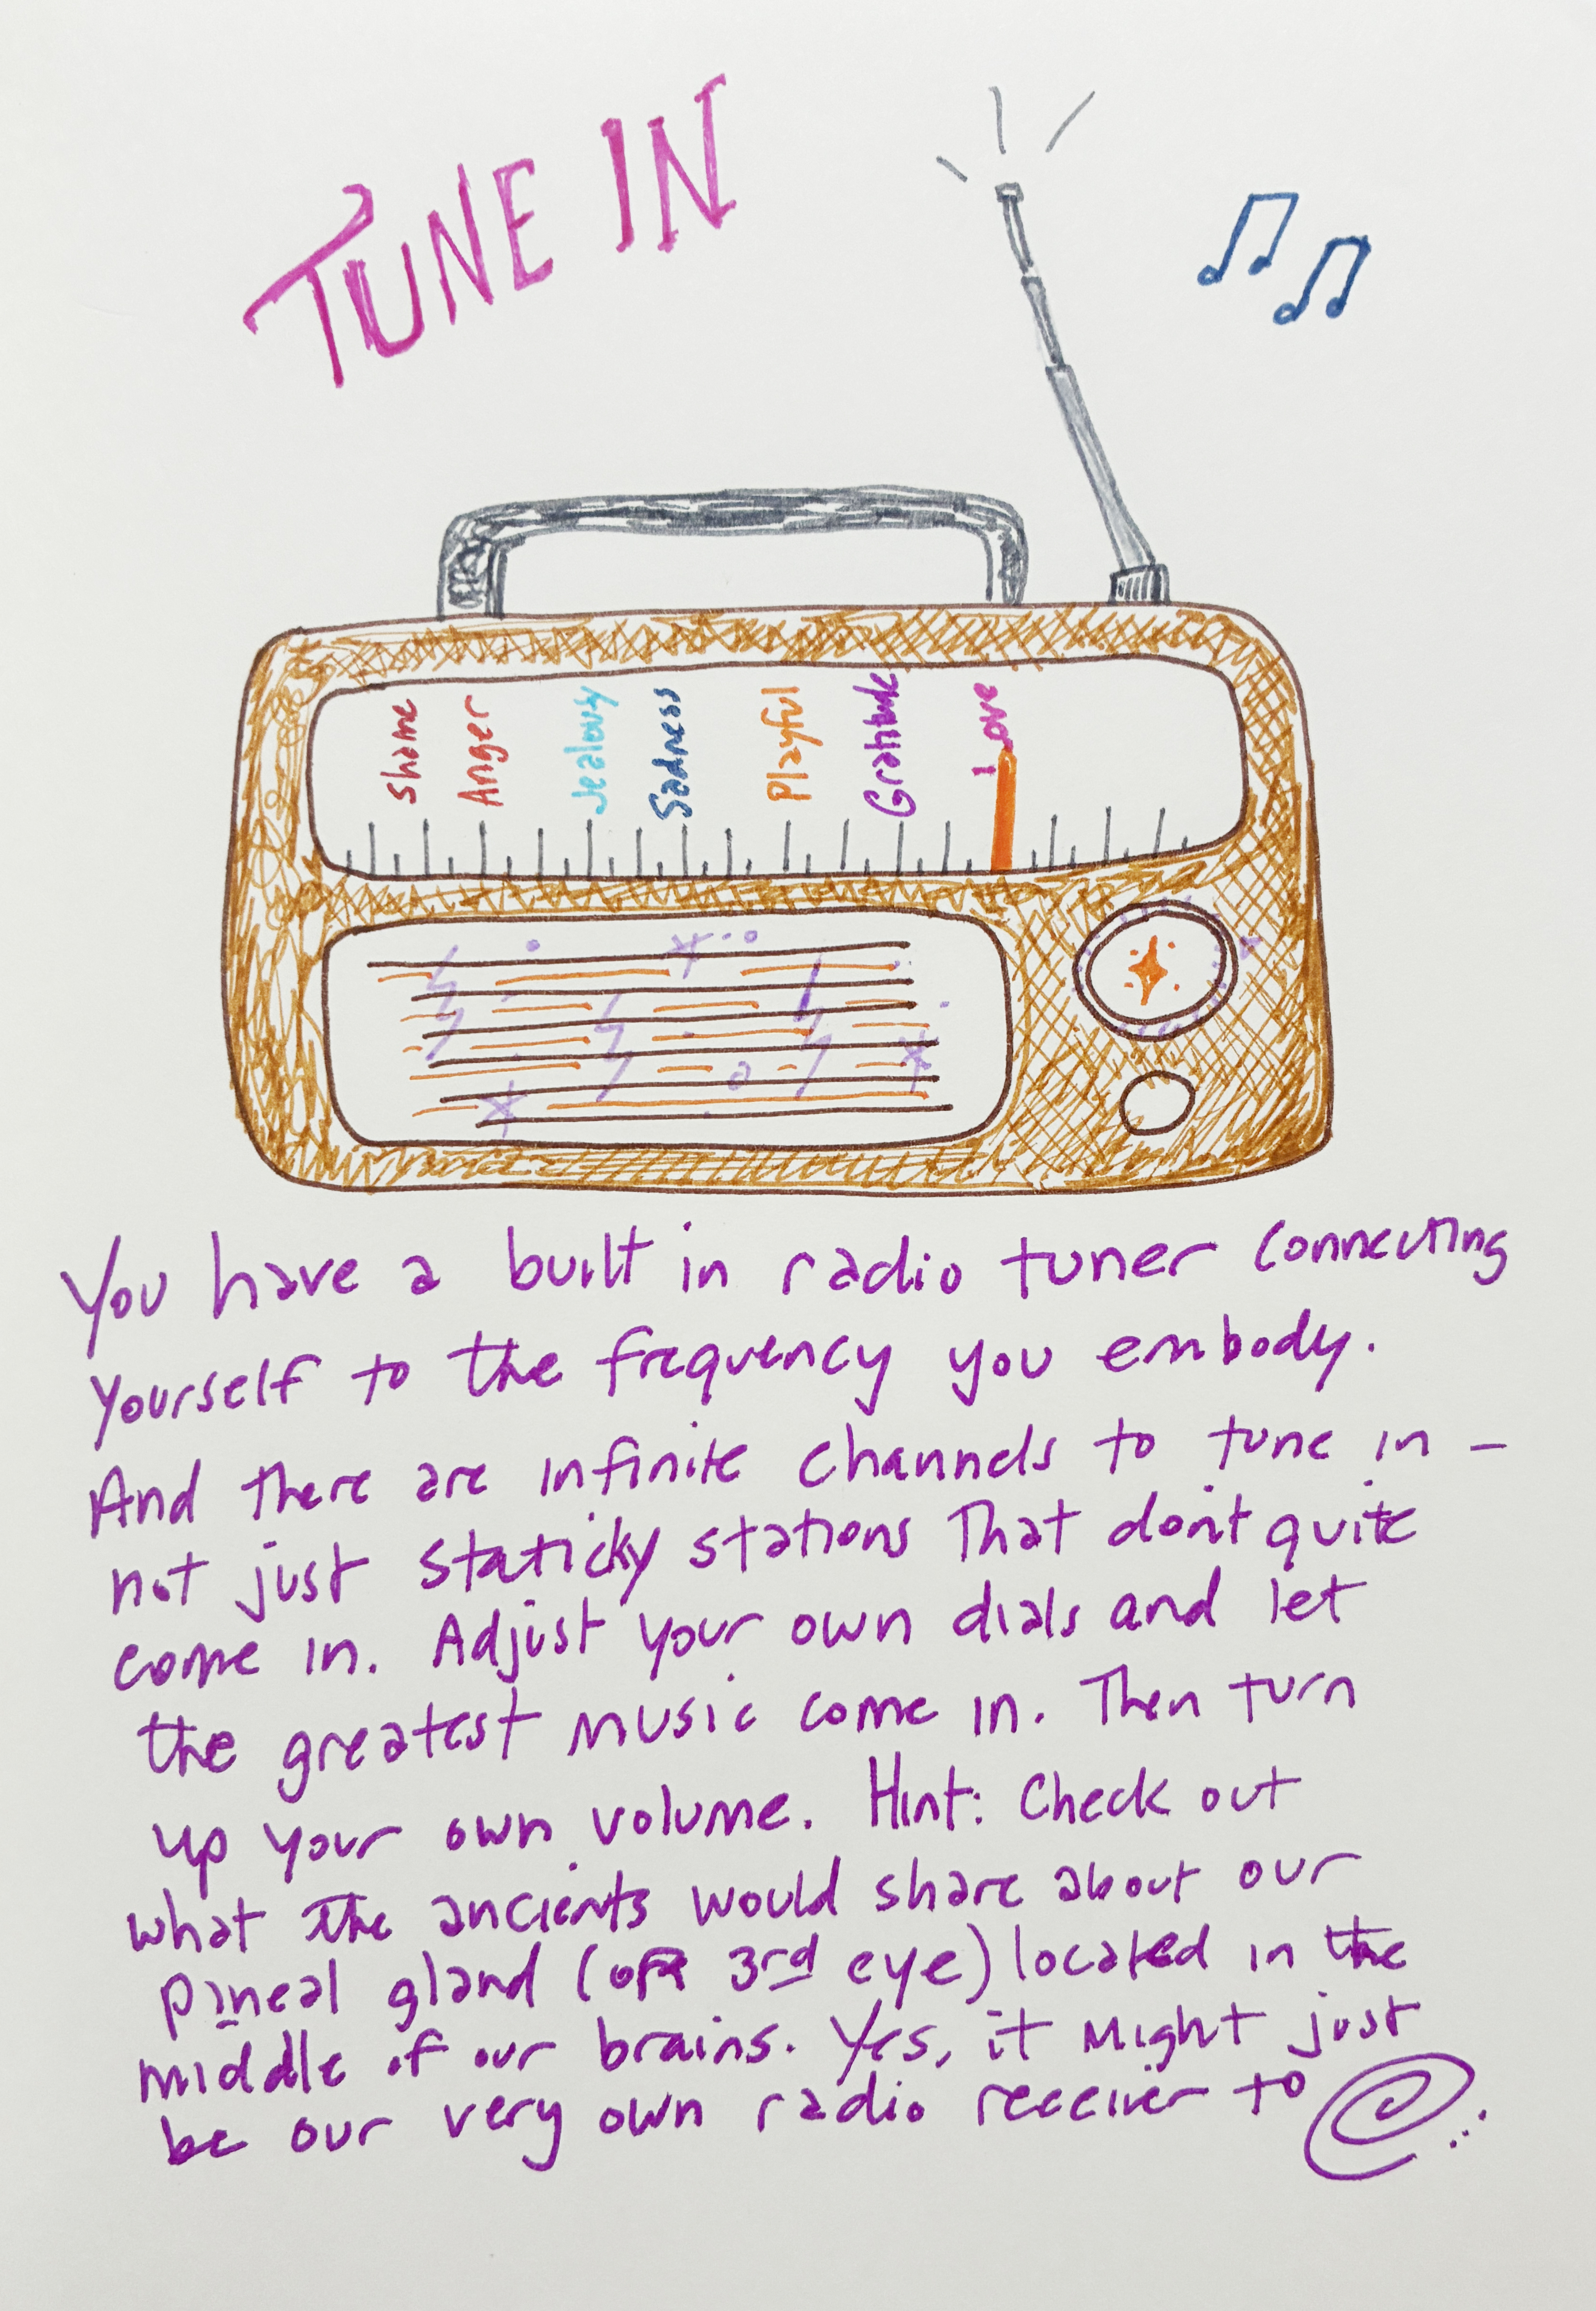 TUNE IN
Shame
Anger
Jealousy
Sadness
Playful
Gratitude
Love
You have a built in radio tuner connecting
yourself to the frequency you embody.
And there are infinite channels to tune in -
not just staticky stations that don't quite
come in. Adjust your own dials and let
the greatest music come in. Then turn
up your own volume. Hint: Check out
what the ancients would share about our
pineal gland (or 3rd eye) located in the
middle of our brains. Yes, it might just
be our very own radio receiver to